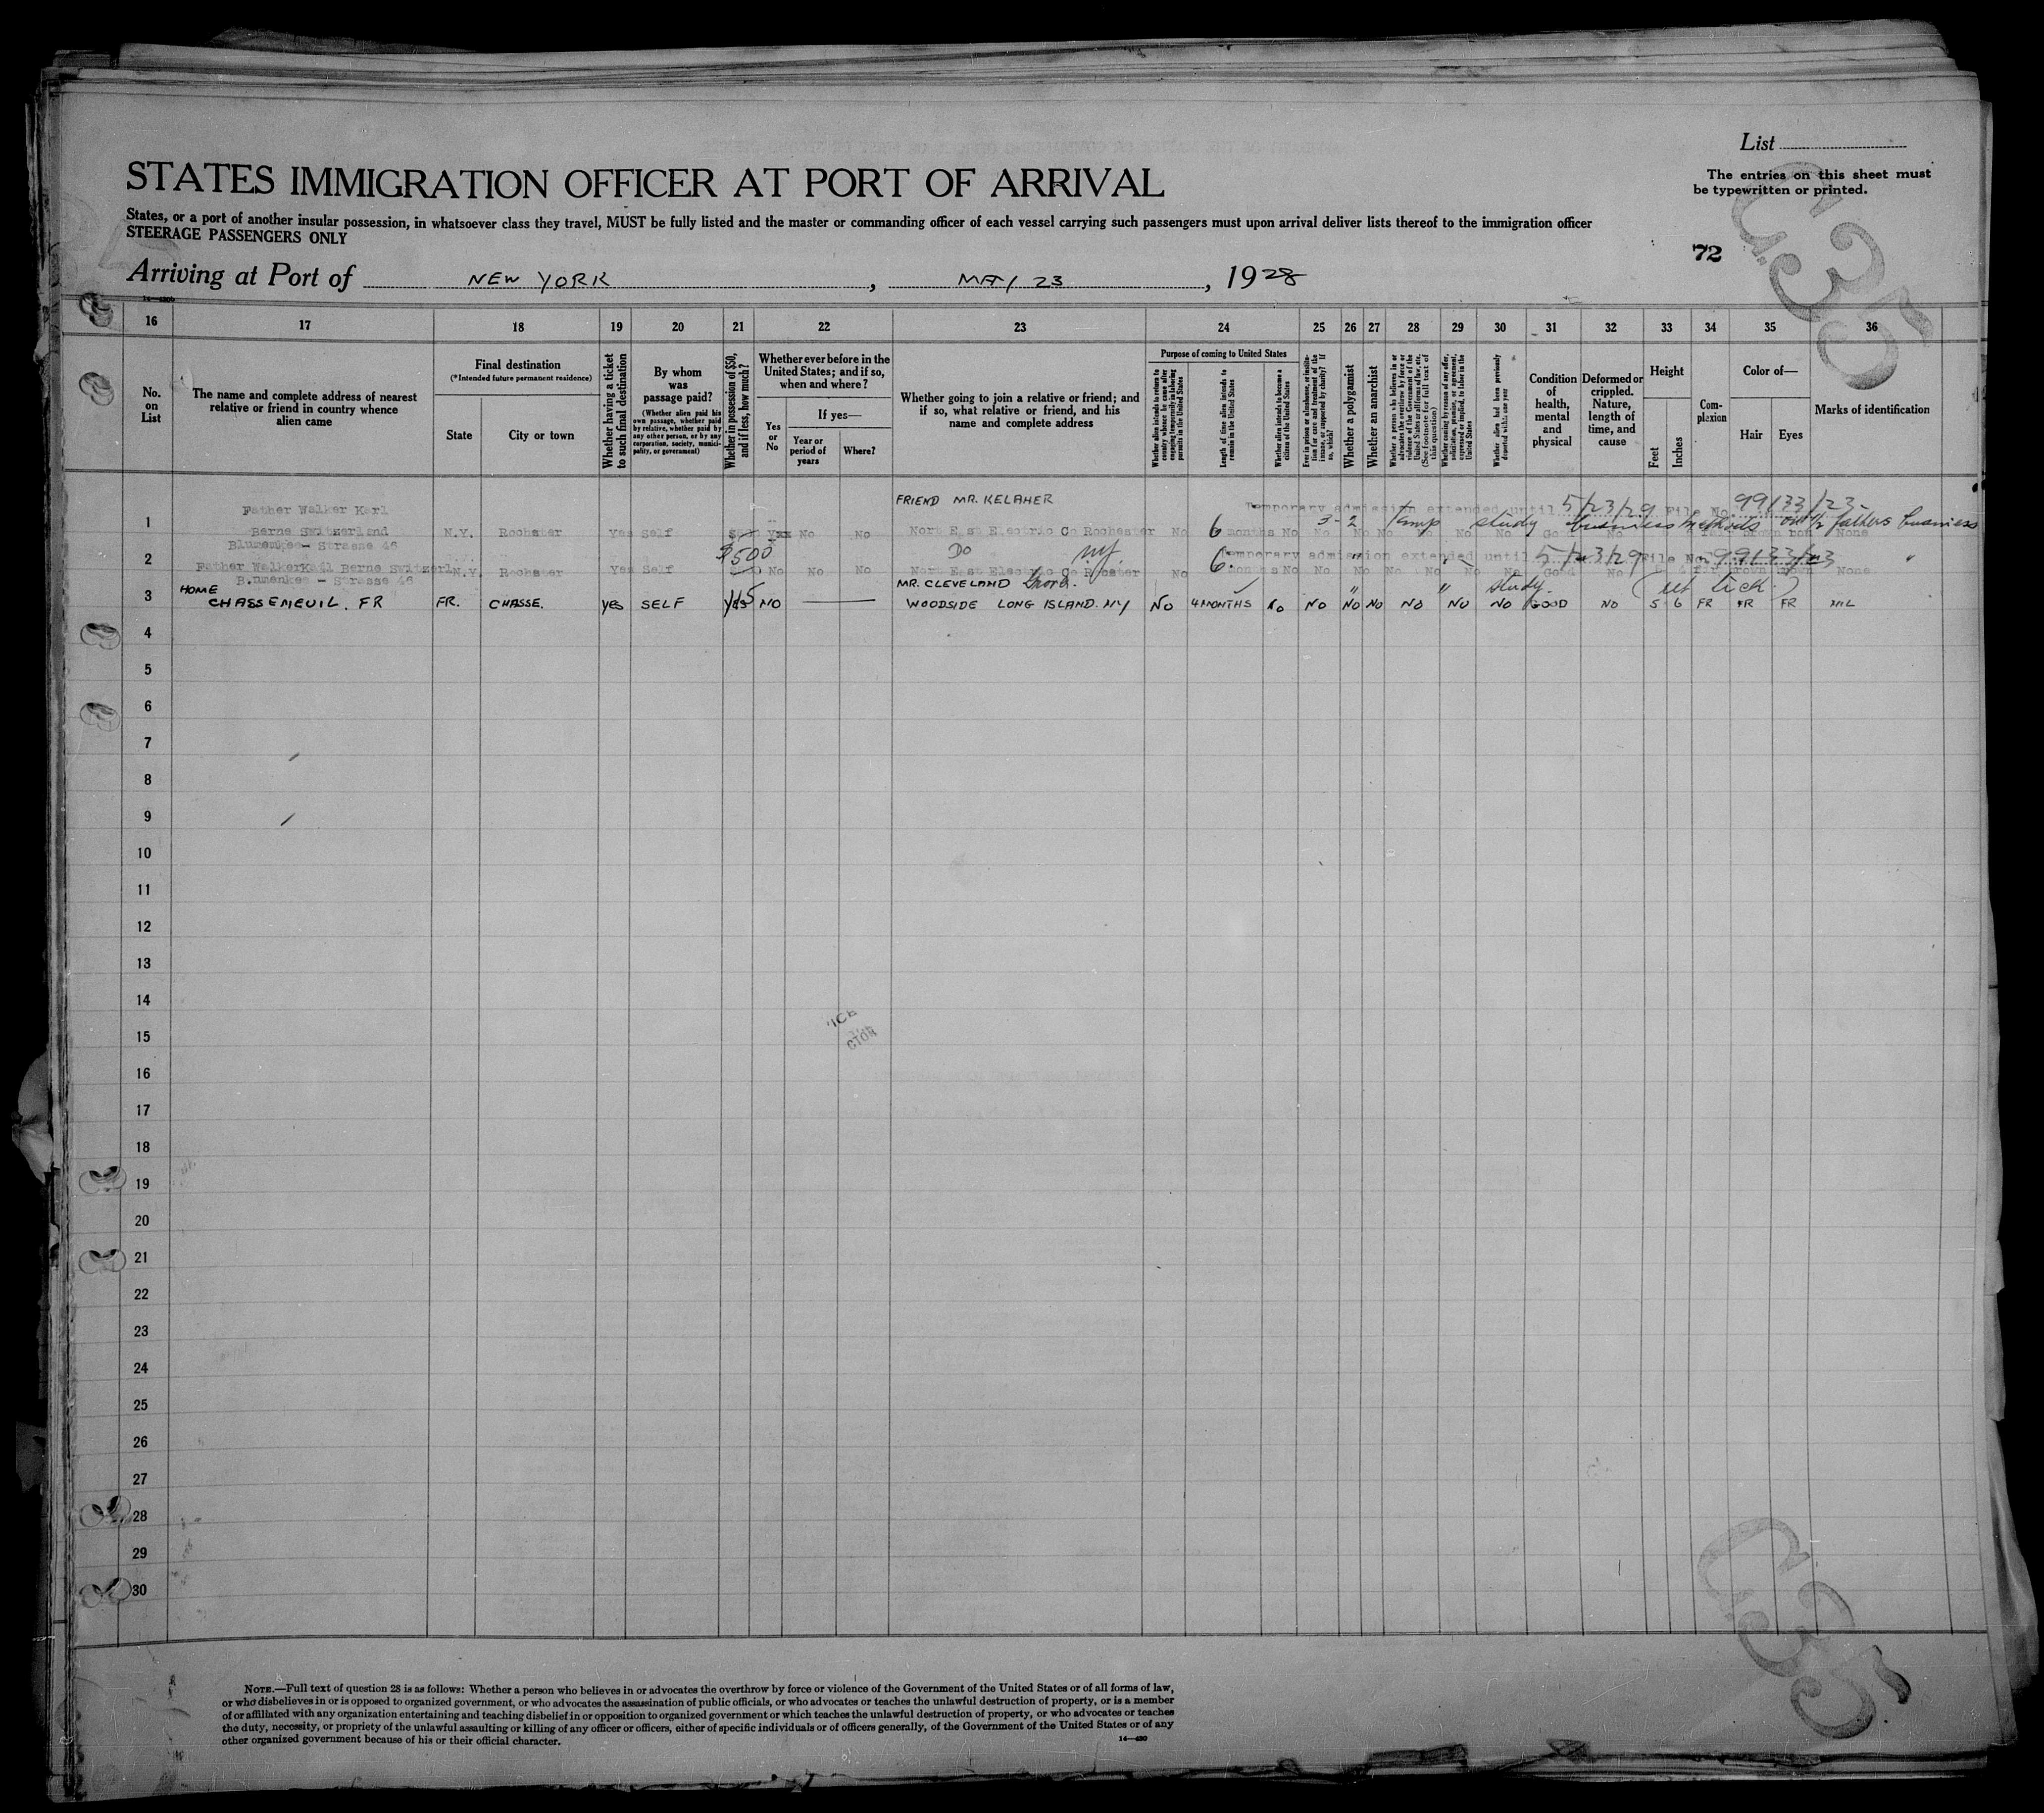 List
The entries on this sheet must
be typewritten or printed.
STATES IMMIGRATION OFFICER AT PORT OF ARRIVAL
States, or a port of another insular possession, in whatsoever class they travel, MUST be fully listed and the master or commanding officer of each vessel carrying such passengers must upon arrival deliver lists thereof to the immigration officer
STEERAGE PASSENGERS ONLY
72
Arriving at Port of NEW YORK, MAY 23, 1928
16 17 18 19 20 21 22 23 24 25 26 27 28 29 30 31 32 33 34 35 36
No. on List
The name and complete address of nearest
relative or friend in country whence
alien came
Final destination
(*Intended future permanent residence)
State
City or town
Whether having a ticket
to such final destination
By whom
was
passage paid?
(Whether alien paid his
own passage, whether paid
by relative, whether paid by
any other person, or by any
corporation, society, munici-
pality, or government)
Whether in possession of $50,
and if less, how much?
Whether ever before in the
United States; and if so,
when and where?
Yes
or
No
If yes—
Year or
period of
years
Where?
Whether going to join a relative or friend; and
if so, what relative or friend, and his
name and complete address
Purpose of coming to United States
Whether alien intends to return to
country whence he came after
engaging temporarily in laboring
pursuits in the United States
Length of time alien intends to
remain in the United States
Whether alien intends to become a
citizen of the United States
Ever in prison or almshouse, or institu-
tion for care and treatment of the
insane, or supported by charity? If
so, which?
Whether a polygamist
Whether an anarchist
Whether a person who believes in or
advocates the overthrow by force or
violence of the Government of the
United States or all forms of law, etc.
(See footnote for full text of
this question)
Whether coming by reason of any offer,
solicitation, promise, or agreement,
expressed or implied, to labor in the
United States
Whether alien had been previously
deported within one year
Condition
of
health,
mental
and
physical
Deformed or
crippled.
Nature,
length of
time, and
cause
Height
Feet
Inches
Com-
plexion
Color of—
Hair
Eyes
Marks of identification
FRIEND MR. KELAHER
Temporary admission extended until 5/23/29 File No. 99133/23
Father Walker Karl
3-2 temp study business methods
fathers business
1 Berne Switzerland N.Y. Rochester Yes Self No No Nort East Electric Co Rochester No 6 months No No No No No No No Good No None
Blumenkes- Strasse 46
$500
Do
N.Y.
Temporary admission extended until 5/23/29 File No. 99133/23
2 Father Walker Karl Berne Switzerl N.Y. Rochester Yes Self No No No Nort East Electric Co Rochester No 6 months No No No No No No No Good No None
Blumenkes - Strasse 46
HOME
MR. CLEVELAND
" " study.
3 CHASSENEUIL. FR FR. CHASSE. yes SELF yes NO WOODSIDE LONG ISLAND. NY No 4 MONTHS No NO NO NO NO NO NO GOOD NO 5 6 FR FR FR NIL
4
5
6
7
8
9
10
11
12
13
14
15
16
17
18
19
20
21
22
23
24
25
26
27
28
29
30
NOTE.—Full text of question 28 is as follows: Whether a person who believes in or advocates the overthrow by force or violence of the Government of the United States or of all forms of law,
or who disbelieves in or is opposed to organized government, or who advocates the assassination of public officials, or who advocates or teaches the unlawful destruction of property, or is a member
of or affiliated with any organization entertaining and teaching disbelief in or opposition to organized government or which teaches the unlawful destruction of property, or who advocates or teaches
the duty, necessity, or propriety of the unlawful assaulting or killing of any officer or officers, either of specific individuals or of officers generally, of the Government of the United States or of any
other organized government because of his or their official character.
14—430